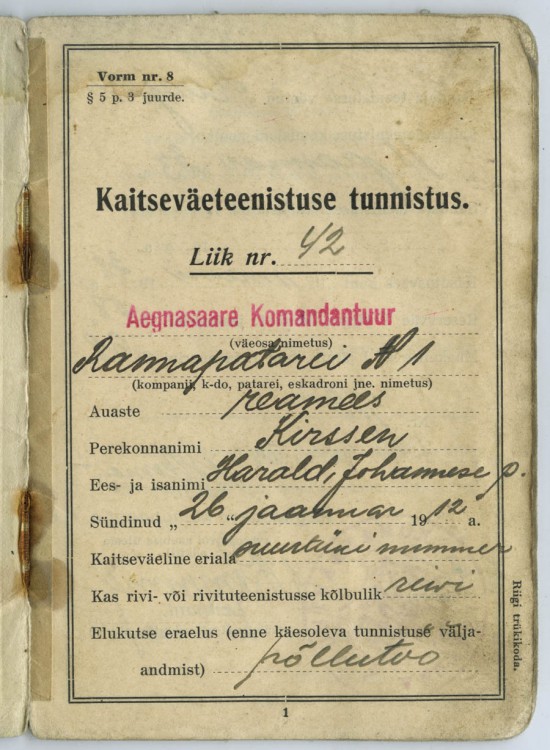 Vorm nr. 8
§ 5 p. 3 juurde.
Kaitseväeteenistuse tunnistus.
Liik nr. 42
Aegnasaare Komandantuur
(väeosa nimetus)
Rannapatarei № 1
(kompanii, k-do, patarei, eskadroni jne. nimetus)
Auaste reamees
Perekonnanimi Kirssen
Ees- ja isanimi Harald, Johannese p.
Sündinud „ 26 “ jaanuar 1912 a.
Kaitseväeline eriala suurtüki nummer
Kas rivi- või rivituteenistusse kõlbulik rivi
Elukutse eraelus (enne käesoleva tunnistuse välja-
andmist) põllutöö
Riigi trükikoda.
1